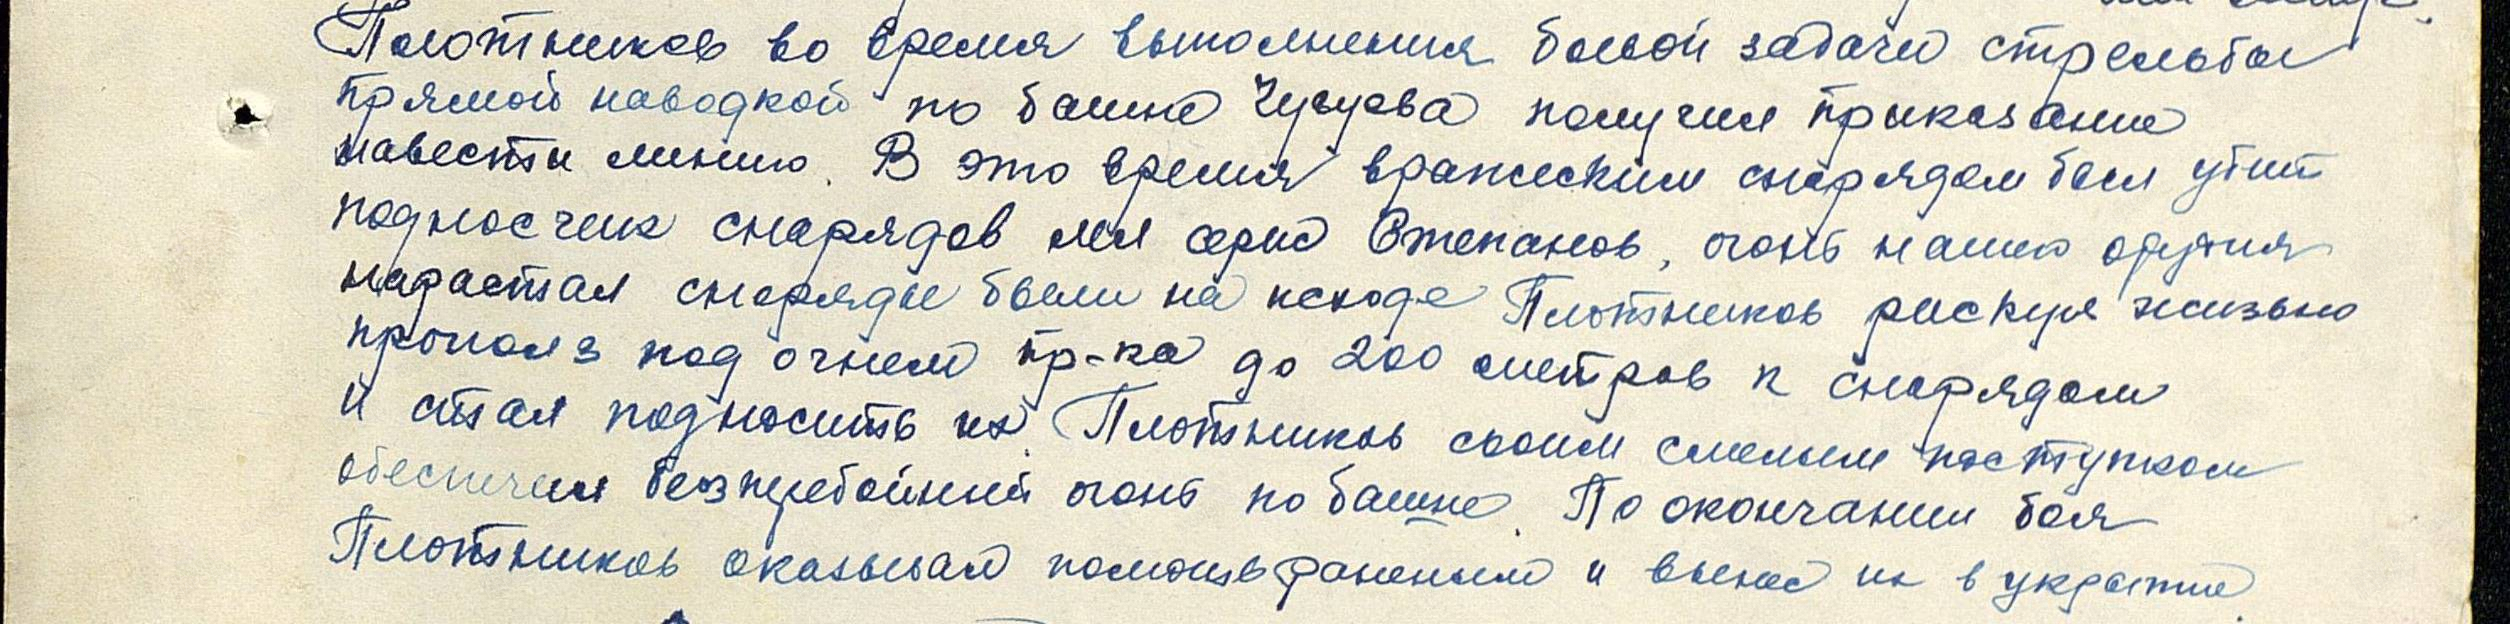 Плотников во время выполнения боевой задачи стрельбы
прямой наводкой по башне Чугуева получил приказание
навести линию. В это время вражеским снарядом был убит
подносчик снарядов мл серж Степанов, огонь нашего орудия
нарастал снаряды были на исходе Плотников рискуя жизнью
прополз под огнем пр-ка до 200 метров к снарядам
и стал подносить их. Плотников своим смелым поступком
обеспечил безперебойний огонь по башне. По окончании боя
Плотников оказывал помощь раненым и вынес их в укрытие.